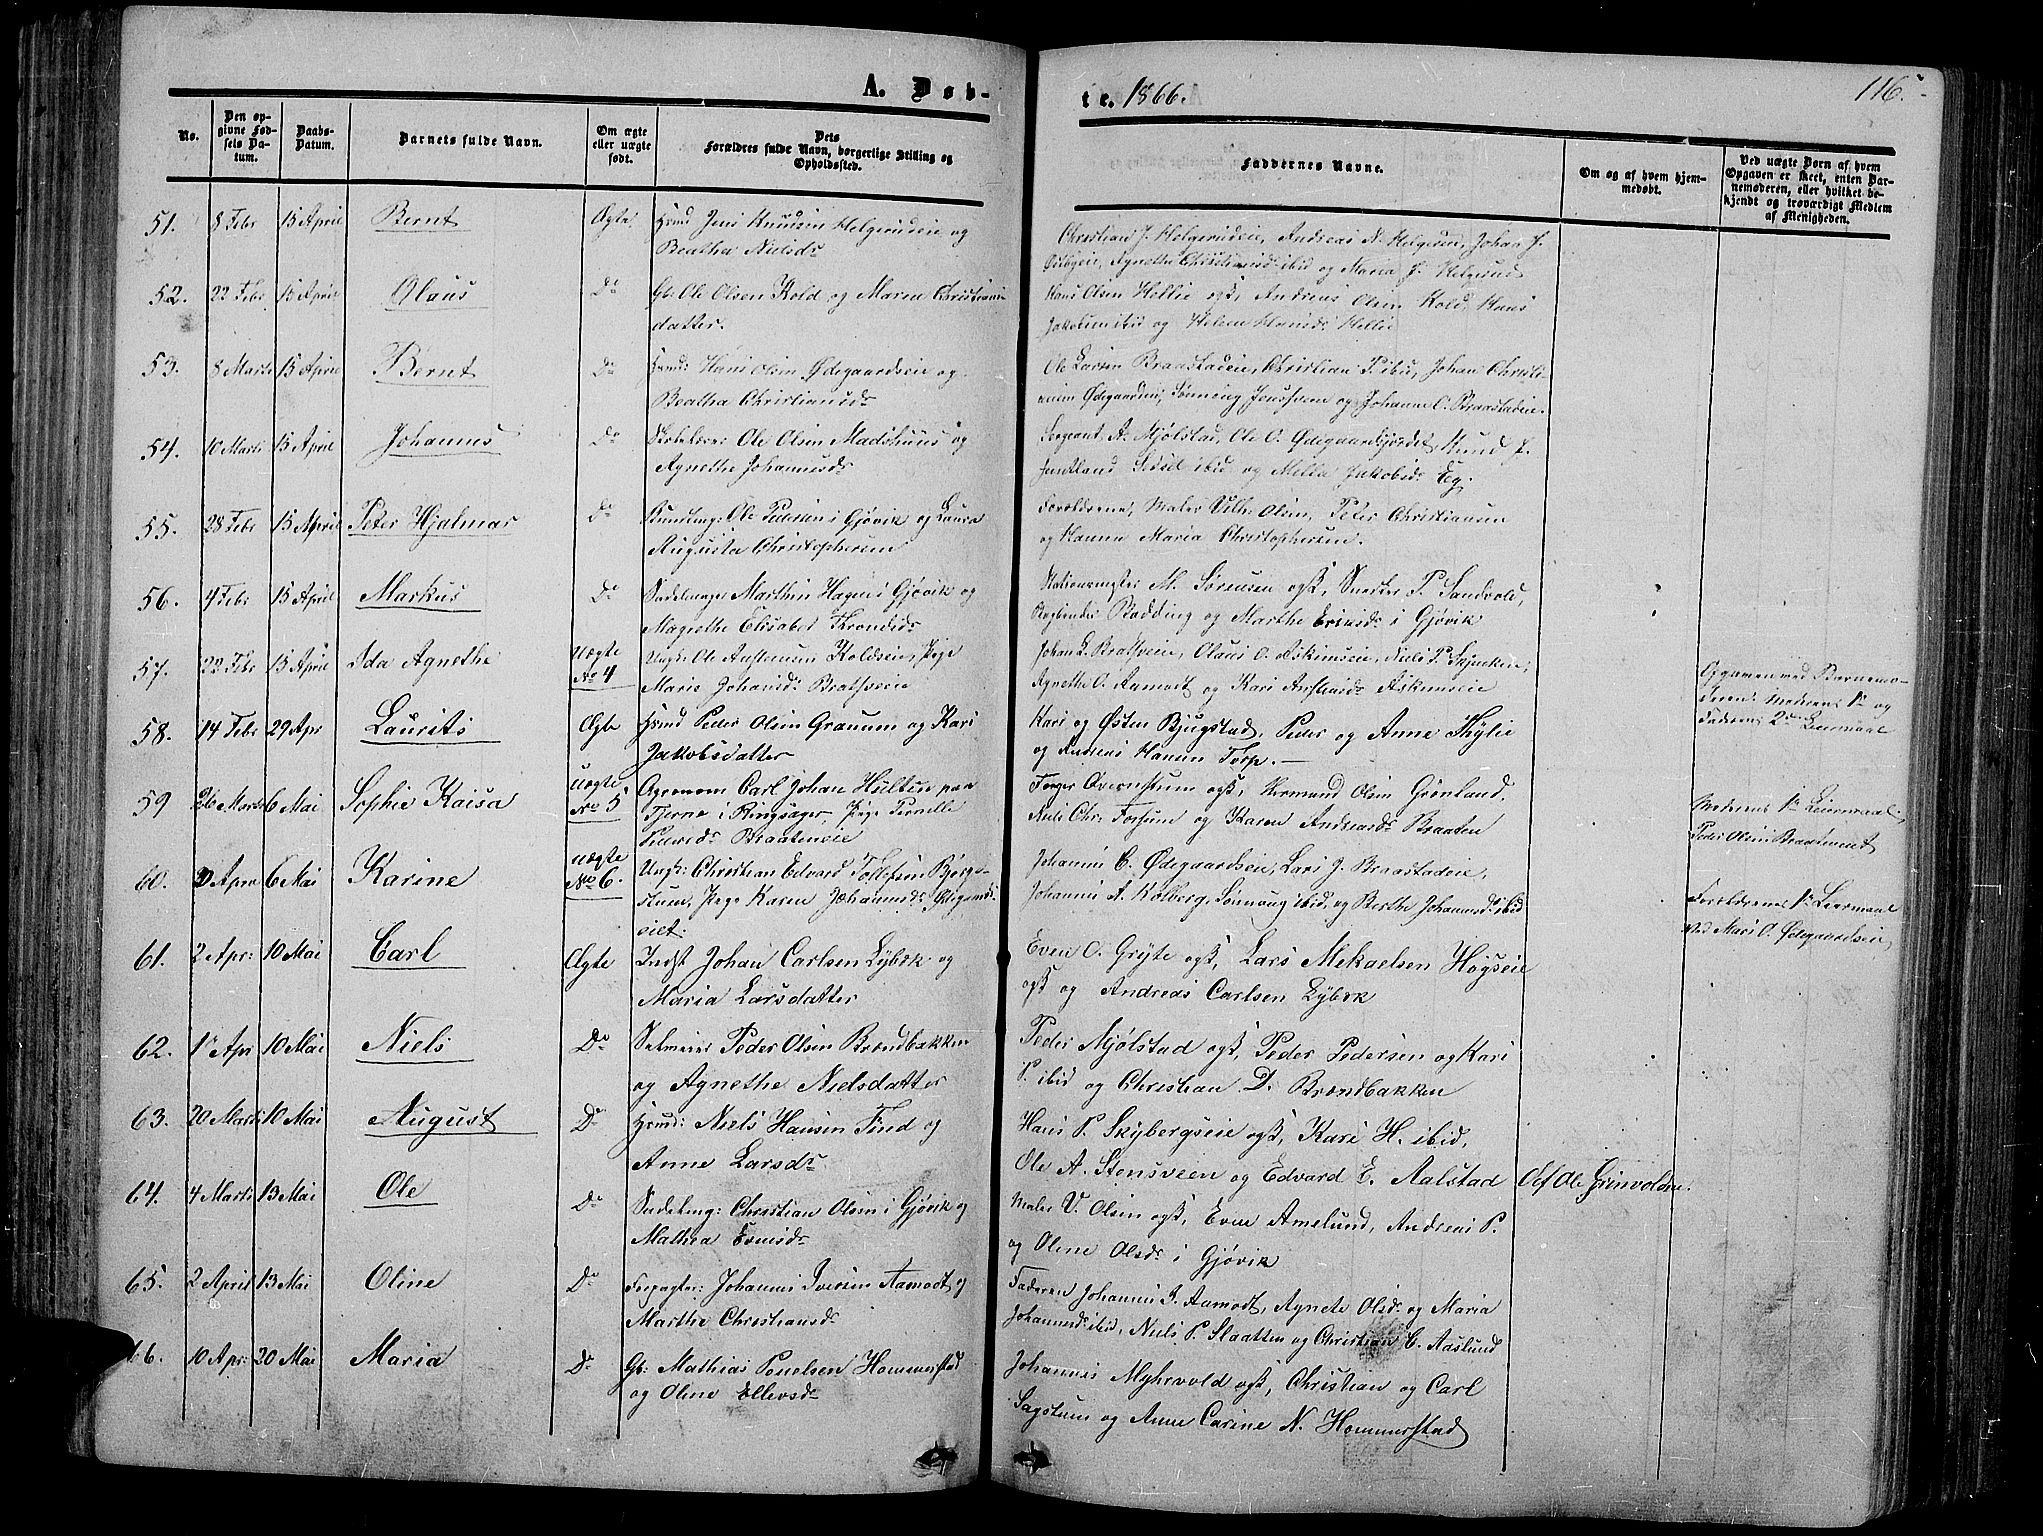 A. Døb-
te. 1866.
116.
No.
Den op-
givne Fød-
sels Da-
tum.
Daabs-
Datum.
Barnets fulde Navn.
Om ægte
eller uægte
født.
Dets
Forældres fulde Navn, borgerlige Stilling og
Opholdssted.
Faddernes Navne.
Om og af hvem hjem-
medøbt.
Ved uægte Børn af hvem
Opgaven er skeet, enten Bar-
nemoderen, eller hvilket be-
kjendt og troværdigt Medlem
af Menigheden.
51. 8 Febr 15 April Bernt Ægte Hmd Jens Knudsen Helgerudeie og
Beatha Nielsdr
Christian J. Helgerudeie, Andreas N. Helgerud, Johan J.
Agnethe Christiansdr ibid og Maria J. Helgerud
52. 22 Febr 15 April Olaus Do Gb: Ole Olsen Kold og Maren Christians
datter.
Hans Olsen Hellie ogk, Andreas Olsen Kold, Hans
Jakobsen ibid og Helene Hansdr Hellie
53. 8 Marts 15 April Bernt Do Hmd: Hans Olsen Ødegaardseie og
Beatha Christiansdr
Ole Larsen Braastadeie, Christian P. ibid, Johan Christi-
ansen Ødegaardseie, Sønnøug Jensdr og Johanne O. Braastadeie.
54. 10 Marts 15 April Johannes Do Skolelærer Ole Olsen Madshuus og
Agnethe Johannesdr
Sergeant A. Mjølstad, Ole O. Ødegaardhjordet, Knud J.
Sidsel ibid og Mella Jakobsdr Eg.
55. 28 Febr 15 April Peter Hjalmar Do Handling: Ole Pedersen i Gjøvik og Laura
Augusta Christophersen
Forældrene, Maler Vilh. Olsen, Peter Christiansen
og Hanna Maria Christophersen.
56. 4 Febr 15 April Markus Do Sadelmager Marthin Hagen i Gjøvik og
Magrethe Elisabet Throndsdr
Stationsmester M. Sørensen ogk, Snedker P. Sandvold,
Bogbinder Rødding og Marthe Evensdr i Gjøvik
57. 22 Febr 15 April Ida Agnethe Uægte
No 4
Ungk: Ole Anstensen Koldseie, Pige
Marie Johansdr Bratsveie
Johan L. Bratsveie, Olaus O. Askimseie, Niels P. Skjerken,
Agnethe O. Aamodt og Kari Anstensdr Askimseie
Opgaven ved Barnemo-
deren. Moderens 1ste og
Faderens 2den Leiermaal
58. 14 Febr 29 Apr Laurits Ægte Hmd Peder Olsen Graaum og Kari
Jakobsdatter
Kari og Østen Bjugstad, Peder og Anne Hylie
og Andreas Hansen Torp. —
59 26 Marts 6 Mai Sophie Kaisa Uægte
No 5
Agronom Carl Johan Hulten paa
Tjerne i Ringsager, Pige Pernelle
Braateneie
Torger Overnstuen ogk, Hermand Olsen Grønland,
Niels Chr. Forsum og Karen Andreasdr Braaten
Moderens 1ste Leiermaal,
Peder Olsen Braateneiet
60. 2 Apr 6 Mai Karine Uægte
No 6.
Ungk: Christian Edvard Tollefsen Bjørge-
stuen, Pige Karen Johannesdr Ødegaards-
eiet.
Johannes C. Ødegaardseie, Lars J. Braastadeie,
Johannes A. Kolberg, Sønnøug ibid, og Berthe Johannesdr ibid
Forældrenes 1ste Leiermaal
ved Mari O. Ødegaardseie
61. 2 Apr: 10 Mai Carl Ægte Indst Johan Carlsen Lybæk og
Maria Larsdatter
Even O. Gryte ogk, Lars Mekaelsen Høgseie
ogk og Andreas Carlsen Lybæk
62. 1ste Apr 10 Mai Niels Do Selveier Peder Olsen Brøndbakken
og Agnethe Nielsdatter
Peder Mjølstad ogk, Peder Pedersen og Kari
P. ibid og Christian D. Brøndbakken
63. 20 Marts 10 Mai August Do Hmd: Niels Hansen Find og
Anne Larsdr
Hans P. Skybergseie ogk, Kari H. ibid,
Ole A. Stensveen og Edvard E. Aalstad
Af Ole Grinvoldne.
64. 4 Marts 13 Mai Ole Do Christian Olsen i Gjøvik og
Mathea Evensdr
Maler V. Olsen ogk, Even Amelund, Andreas P.
og Oline Olsdr i Gjøvik
65. 2 April 13 Mai Oline Do Forpagter: Johannes Iversen Aamodt og
Marthe Christiansdr
Faderen Johannes I. Aamodt, Agnete Olsdr og Maria
Johannesdr ibid, Niels P. Slaatten og Christian C. Aaslund
66. 10 Apr: 20 Mai Maria Do Gb: Mathias Poulsen Hommerstad
og Oline Ellevsdr
Johannes Myhrvold ogk, Christian og Carl
Sagstuen og Anne Carine N. Hommerstad